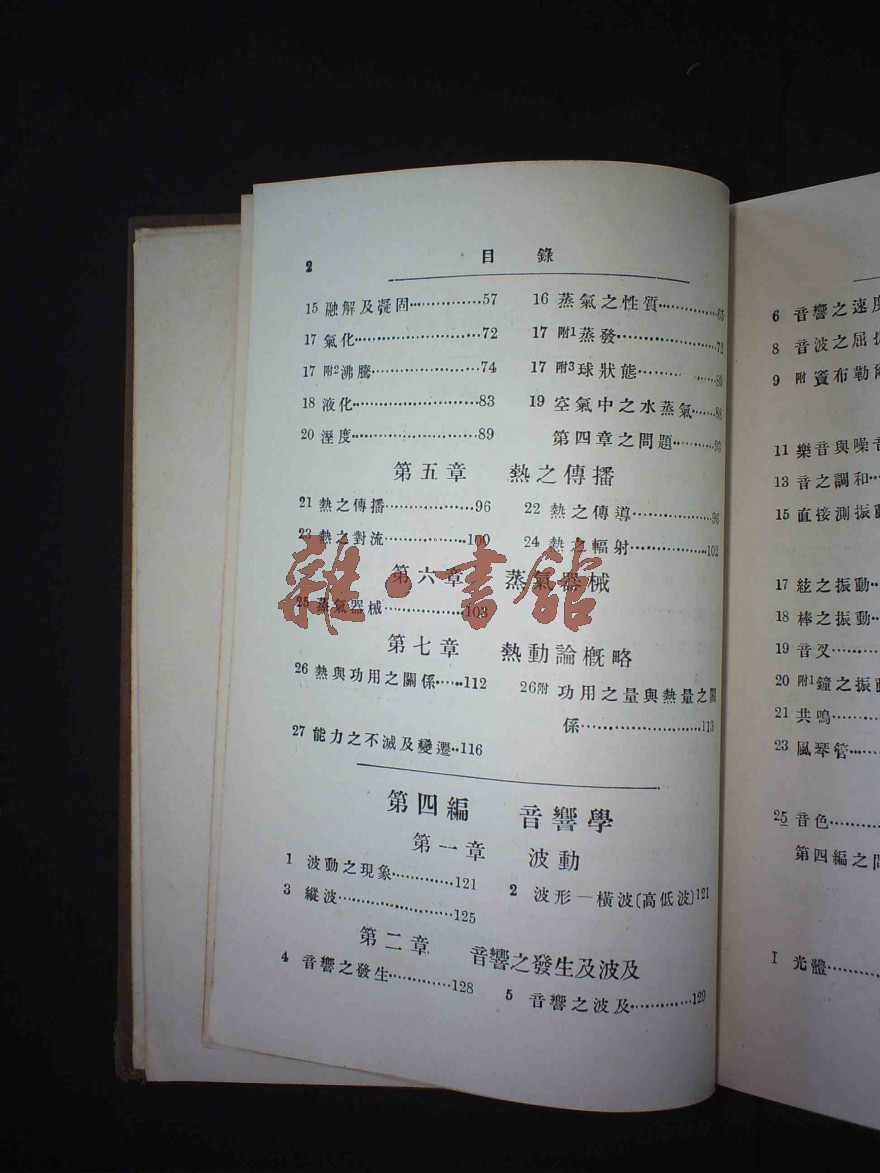 2 目錄
15 融解及凝固……………57 16 蒸氣之性質…………63
17 氣化……………………72 17 附1蒸發………………72
17 附2沸騰………………74 17 附3球狀態……………80
18 液化……………………83 19 空氣中之水蒸氣……88
20 溼度……………………89 第四章之問題…………93
第五章 熱之傳播
21 熱之傳播………………96 22 熱之傳導……………96
23 熱之對流………………100 24 熱之輻射……………102
第六章 蒸氣器械
25 蒸氣器械……………103
第七章 熱動論概略
26 熱與功用之關係……112 26附 功用之量與熱量之關
係……………………113
27 能力之不滅及變遷…116
第四編 音響學
第一章 波動
1 波動之現象…………121 2 波形—橫波〔高低波〕121
3 縱波…………………125
第二章 音響之發生及波及
4 音響之發生…………128 5 音響之波及…………129
雜·書館
6 音響之速度
8 音波之屈折
9 附 竇布勒
11 樂音與噪音
13 音之調和…
15 直接測振動
17 絃之振動…
18 棒之振動…
19 音叉………
20 附1鐘之振動
21 共鳴………
23 風琴管……
25 音色………
第四編之問
I 光體………